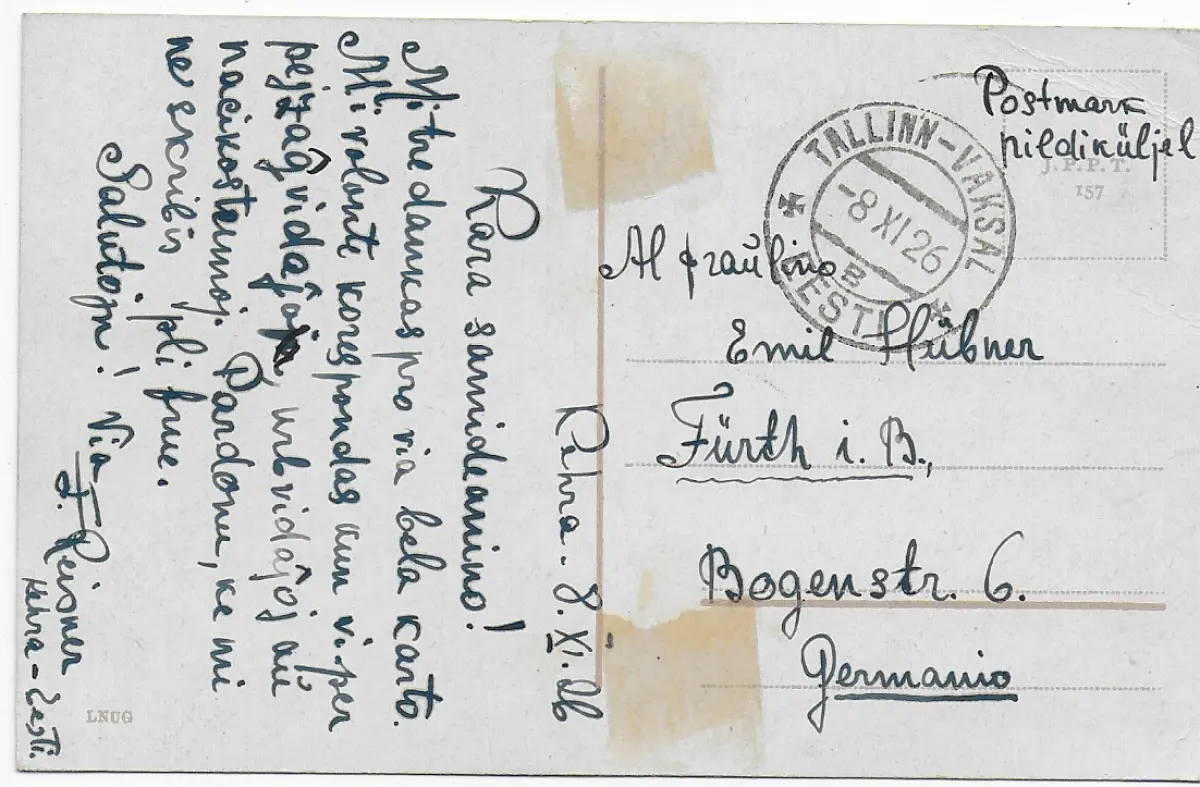 Kehra. 8. XI. 26
Kara samideanino!
Mi tre dankas pro via bela karto.
Mi volonte korespondas kun vi per
pejzaĝvidaĵoj, urbvidaĵoj aŭ
nacikostumoj. Pardonu, ke mi
ne skribis pli frue.
Salutojn! Via
J. Reisner
Kehra-Eesti.
LNUG
Postmark
pildiküljel
J.P.P.T.
157
TALLINN-VAKSAL
-8 XI 26
B
EESTI
Al fraŭlino
Emil Hübner
Fürth i. B.,
Bogenstr. 6.
Germanio